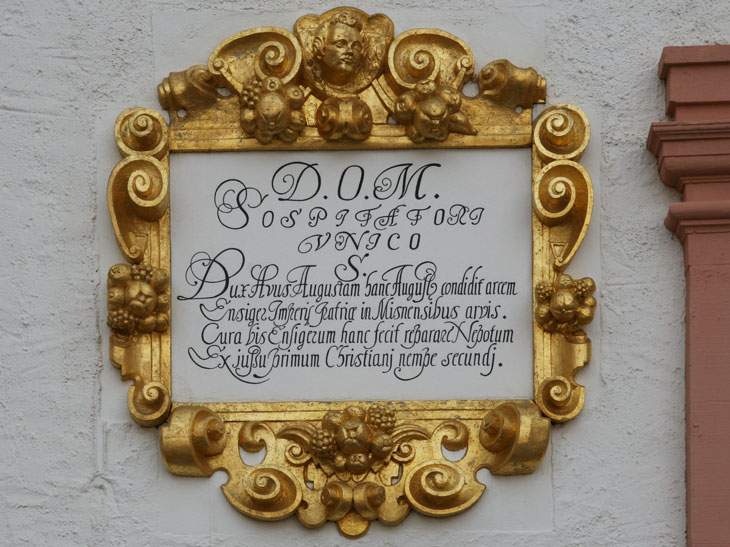 D.O.M.
SOSPITATORI
VNICO
S.
Dux Avus Augustam hanc Augusto condidit arcem
Ensiger Imperij patriq in Misnensibus arvis.
Cura bis Ensigerum hanc fecit reparare Nepotum
Ex jussu primum Christianj nempe secundj.